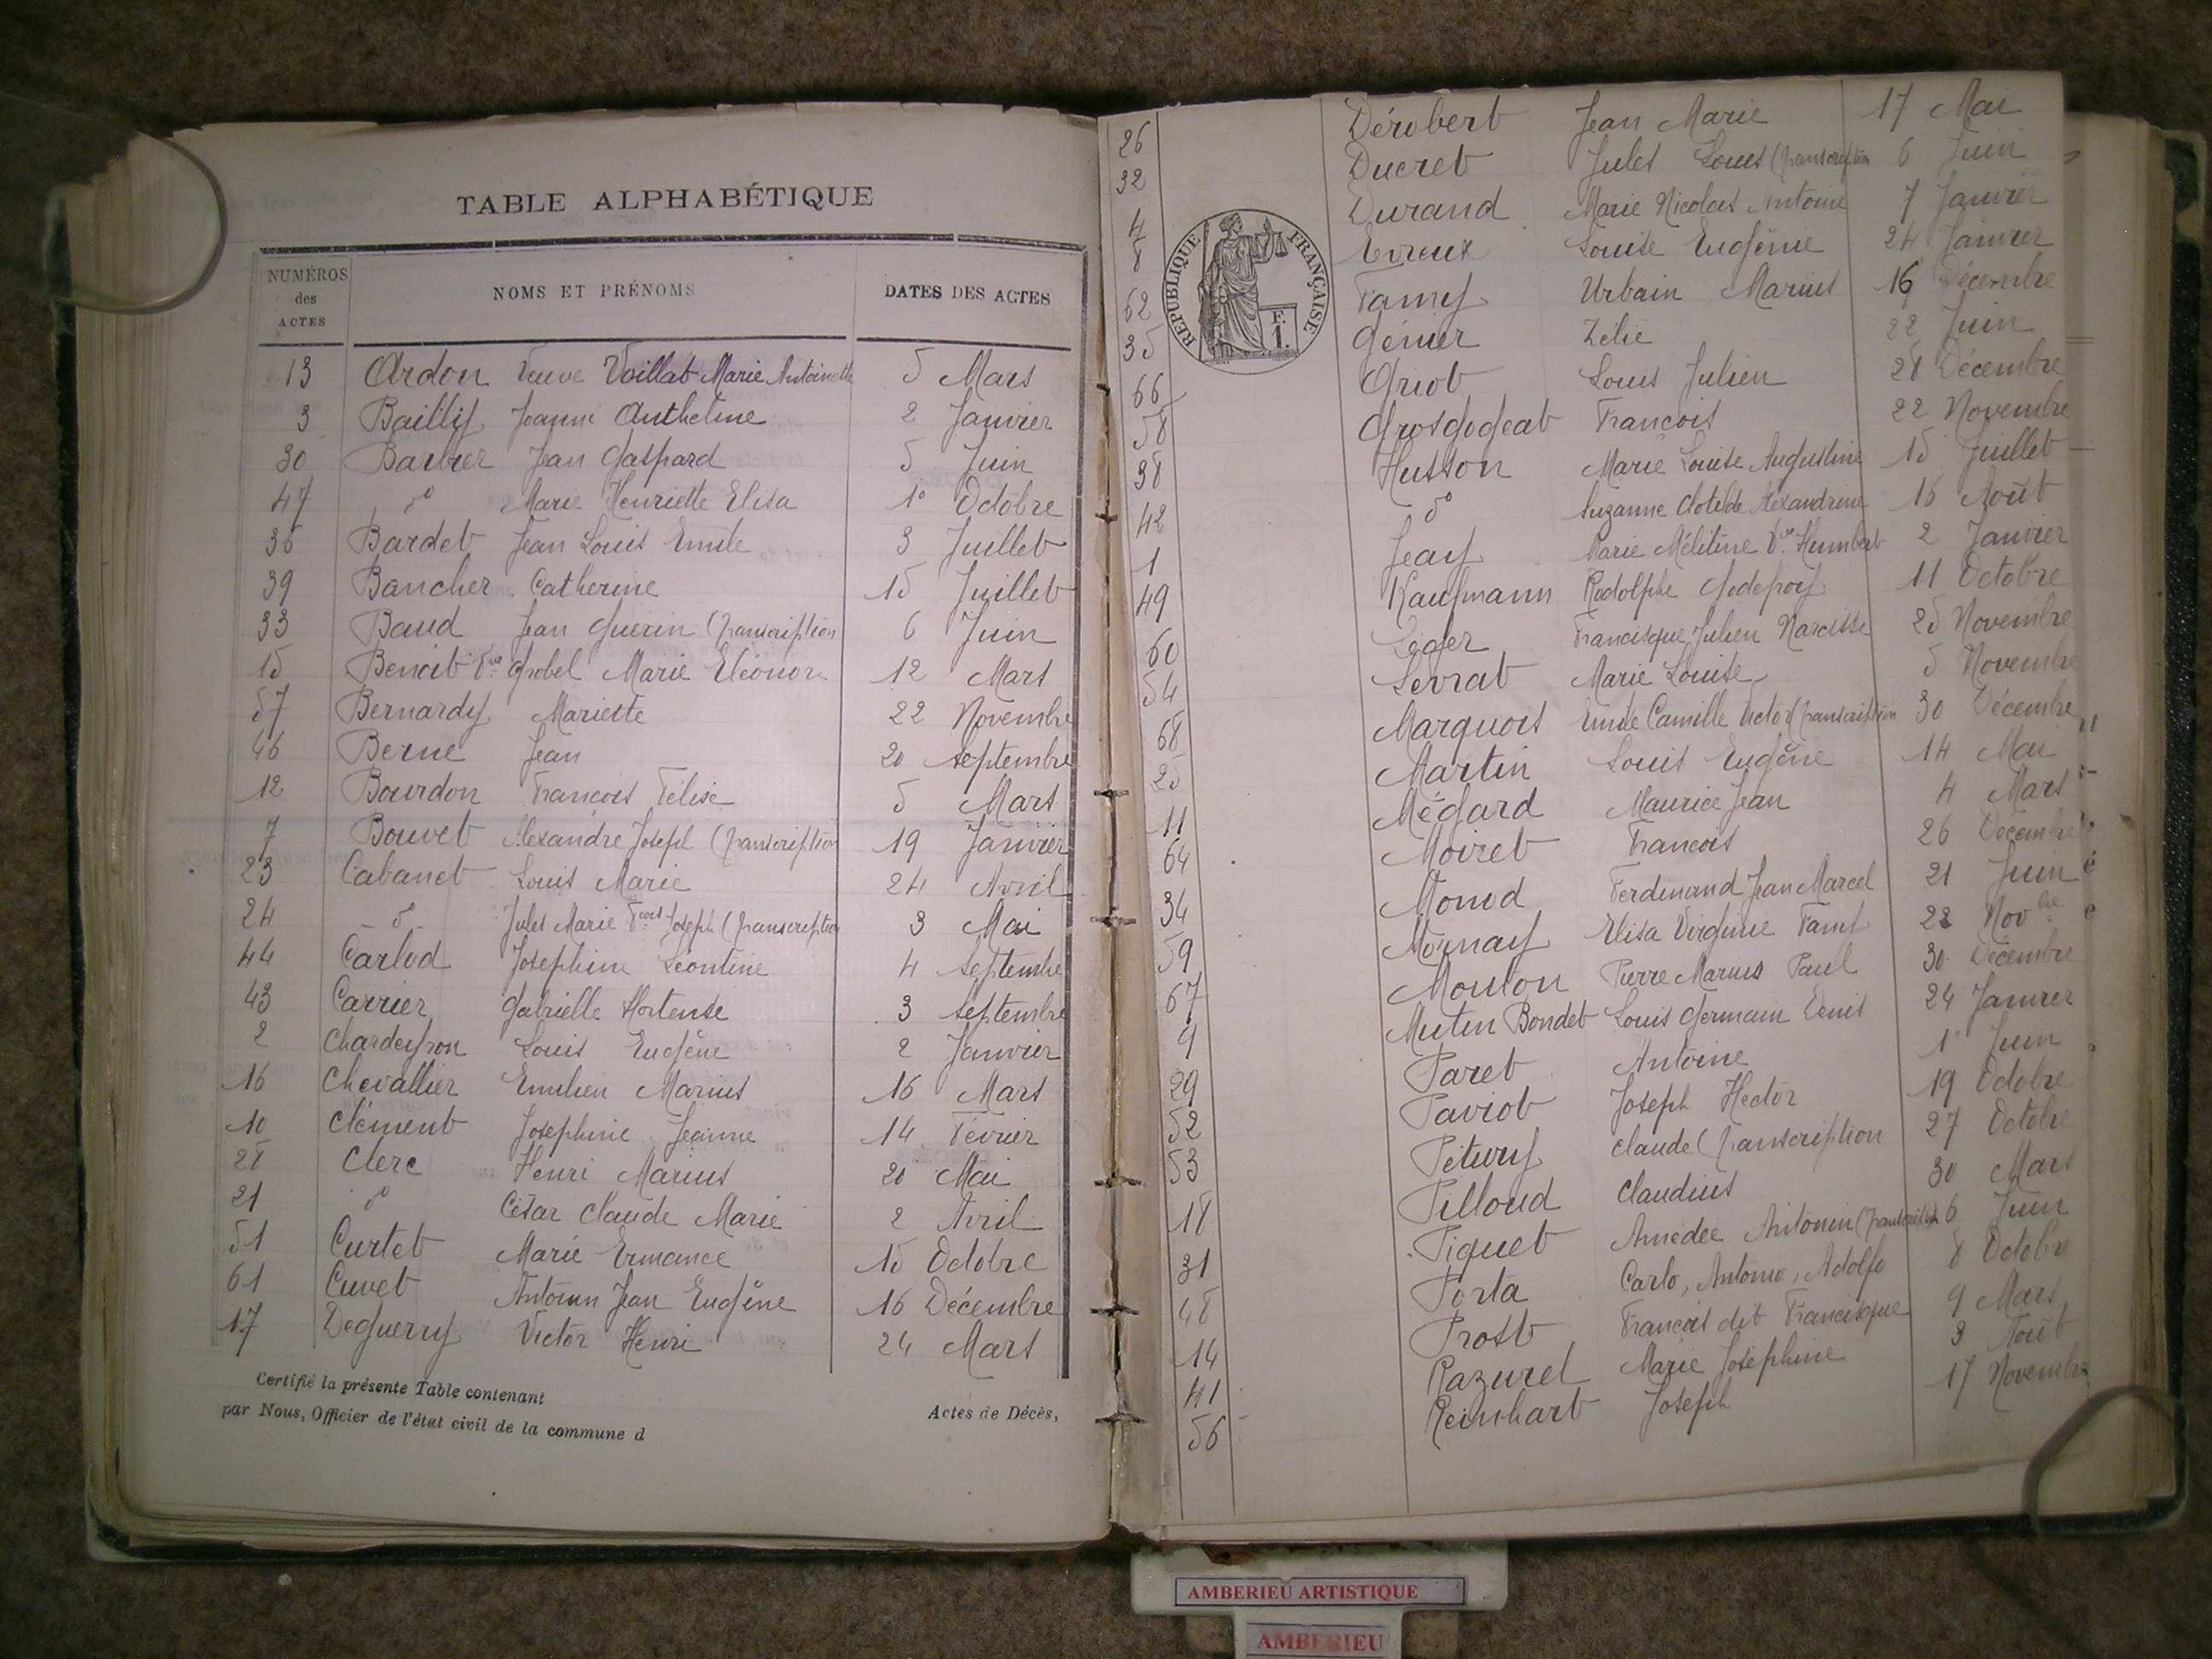 TABLE ALPHABÉTIQUE
NUMÉROS des ACTES NOMS ET PRÉNOMS DATES DES ACTES
13 Ardon Veuve Voillat Marie Antoinette 5 Mars
3 Bailly Jeanne Anthelme 2 Janvier
30 Barbier Jean Gaspard 5 Juin
47 do Marie Henriette Elisa 1o Octobre
36 Bardet Jean Louis Emile 3 Juillet
39 Bancher Catherine 15 Juillet
33 Baud Jean Guerin (transcription 6 Juin
15 Benoit Vve Grobel Marie Eléonore 12 Mars
57 Bernardy Mariette 22 Novembre
46 Berne Jean 20 Septembre
12 Bourdon François Félise 5 Mars
7 Bouvet Alexandre Joseph (transcription 19 Janvier
23 Cabanet Louis Marie 24 Avril
24 do Jules Marie Fcois Joseph (transcription 3 Mai
44 Carlod Josephine Léontine 4 Septembre
43 Carrier Gabrielle Hortense 3 Septembre
2 Chardeyron Louis Eugène 2 Janvier
16 Chevallier Emilien Marius 16 Mars
10 Clément Joséphine Jeanne 14 Février
28 Clerc Henri Marius 20 Mai
21 do César Claude Marie 2 Avril
51 Curtet Marie Ermance 15 Octobre
61 Cuvet Antonin Jean Eugène 16 Décembre
17 Deguerry Victor Henri 24 Mars
Certifié la présente Table contenant Actes de Décès,
par Nous, Officier de l'état civil de la commune d
26 Dérobert Jean Marie 17 Mai
32 Ducret Jules Louis (transcription 6 Juin
4 Durand Marie Nicolas Antoine 7 Janvier
8 Evreux Louise Eugénie 24 Janvier
RÉPUBLIQUE FRANÇAISE
F. 1.
62 Famy Urbain Marius 16 Décembre
35 Génier Zélie 22 Juin
66 Griot Louis Julien 28 Décembre
58 Grosgogeat François 22 Novembre
38 Husson Marie Louise Augustine 15 Juillet
42 do Suzanne Clotilde Alexandrine 16 Août
1 Jeay Marie Mélitine Vve Humbert 2 Janvier
49 Kaufmann Rodolphe Godefroy 11 Octobre
60 Leger Francisque Julien Narcisse 25 Novembre
54 Levrat Marie Louise 5 Novembre
68 Marquois Emile Camille Victor (transcription 30 Décembre
25 Martin Louis Eugène 14 Mai
11 Mégard Maurice Jean 4 Mars
64 Moiret François 26 Décembre
34 Monod Ferdinand Jean Marcel 21 Juin
59 Mornay Elisa Virginie Famy 22 Novbre
67 Mouton Pierre Marius Paul 30 Décembre
9 Mutin Bondet Louis Germain Denis 24 Janvier
29 Paret Antoine 1o Juin
52 Paviot Joseph Hector 19 Octobre
53 Claude (transcription 27 Octobre
18 Pilloud Claudius 30 Mars
31 Piquet Amédée Antonin (transcription 6 Juin
48 Porta Carlo, Antonio, Adolfo 8 Octobre
14 Prost François dit Francisque 9 Mars
41 Razurel Marie Joséphine 3 Août
56 Reinhart Joseph 17 Novembre
AMBERIEU ARTISTIQUE
AMBERIEU